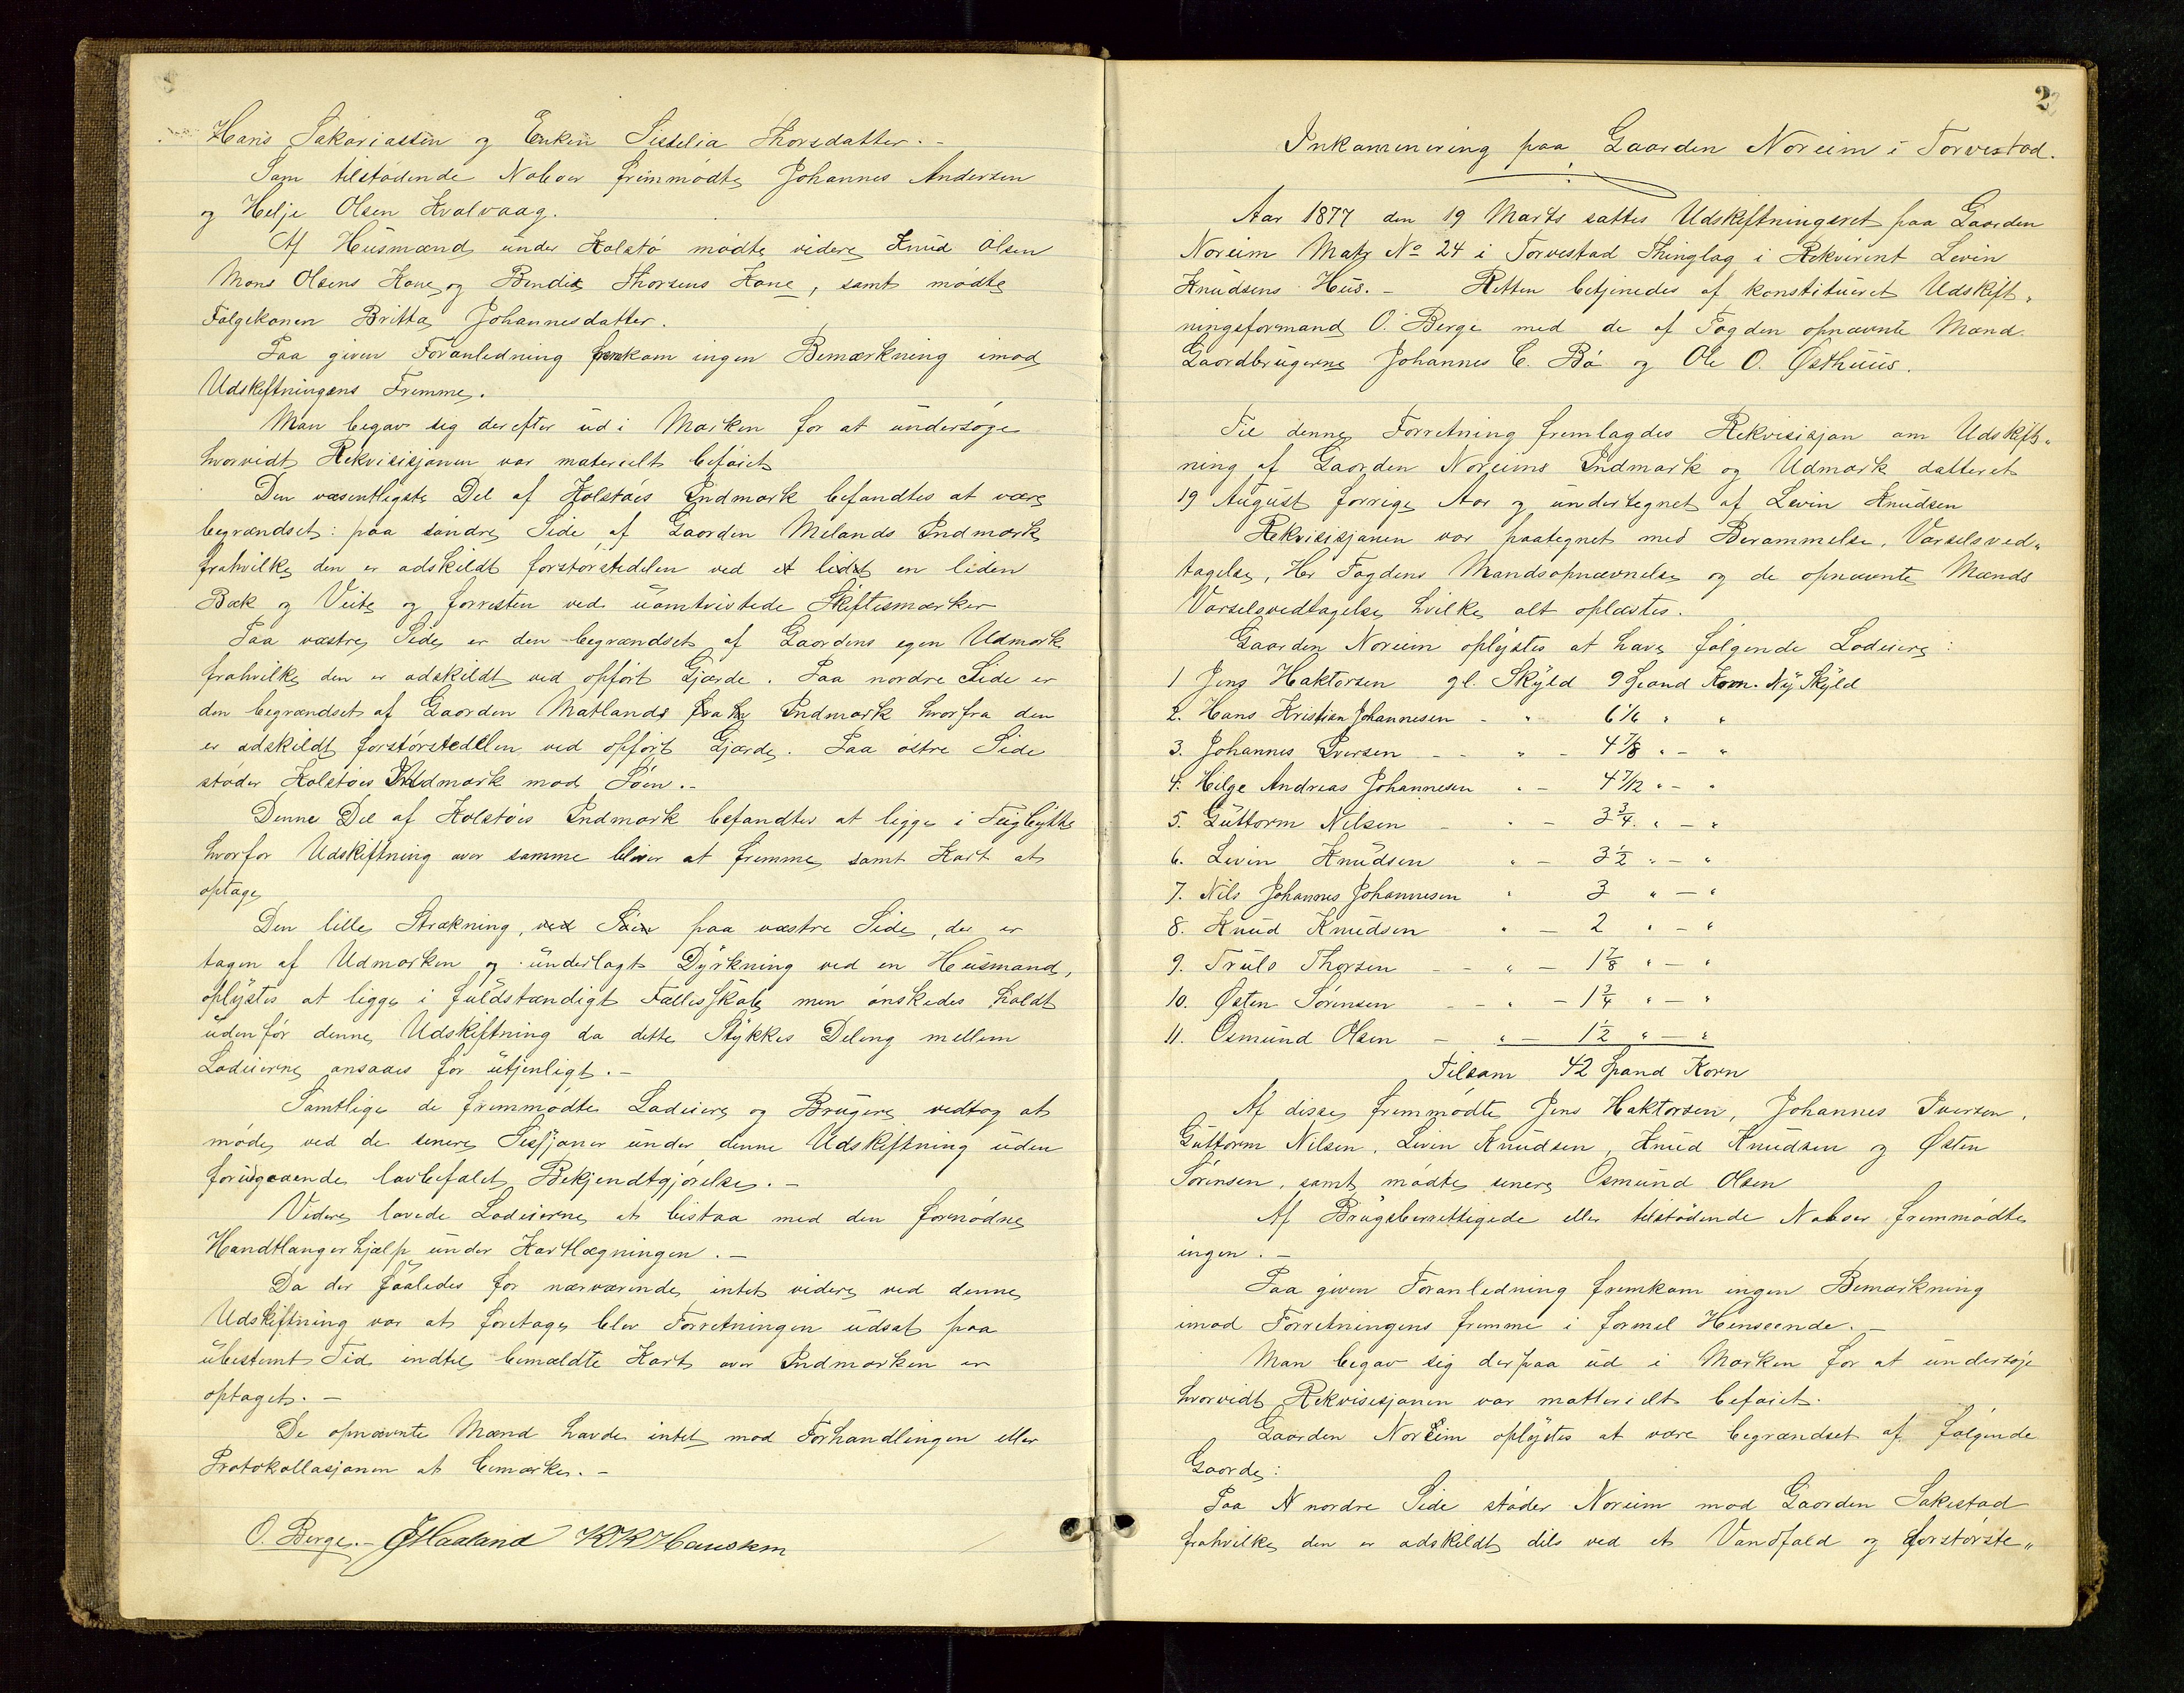 Hans Sakariassen og Enken Sisselia Thorsdatter.-
Som tilstødende Naboer fremmødte Johannes Andersen
og Helje Olsen Kvalvaag.
Af Husmænd under Kolstø mødte videre Knud Olsen
Mons Olsens Kone og Bendix Thorsens Kone, samt mødte
Følgekonen Britta Johannesdatter.
Paa given Foranledning fremkom ingen Bemærkning imod
Udskiftningens Fremme.
Man begav sig derefter ud i Marken for at undersøge
hvorvidt Rekvisisjonen var materielt beføiet
Den væsentligste Del af Kolstøes Indmark befandtes at være
begrændset: paa søndre Side af Gaarden Mælands Indmark
frahvilke den er adskildt forstørstedelen ved et lidet en liden
Bæk og Veite og forresten ved uomtvistede Skiftesmærker
Paa væstre Side er den begrændset af Gaardens egen Udmark
frahvilke den er adskildt ved opført Gjærde. Paa nordre Side er
den begrændset af Gaarden Matlands Indmark hvorfra den
er adskildt forstørstedelen ved opført Gjærde. Paa østre Side
støder Kolstøes Indmark mod Søen.-
Denne Del af Kolstøes Indmark befandtes at ligge i Teigbytte
hvorfor Udskiftning over samme bliver at fremme samt Kart at
optage
Den lille Strækning, ved Søen paa væstre Side, der er
tagen af Udmarken og underlagt Dyrkning ved en Husmand,
oplystes at ligge i fuldstændigt Fællesskab men ønskedes holdt
udenfor denne Udskiftning da dette Stykkes Deling mellem
Lodeierne ansaaes for utjenligt.-
Samtlige de fremmødte Lodeiere og Brugere vedtog at
møde ved de senere Sessjoner under denne Udskiftning uden
forudgaaende lovbefalet Bekjendtgjørelse.-
Videre lovede Lodeierne at bistaa med den fornødne
Handtlangerhjælp under Kartlægningen.-
Da der saaledes for nærværende intet videre ved denne
Udskiftning var at foretage blev Forretningen udsat paa
ubestemt Tid indtil bemældte Kart over Indmarken er
optaget.-
De opnævnte Mænd havde intet mod Forhandlingen eller
Protokollasjonen at bemærke.-
O. Berge.- Haaland K K Hausken
2
Inkaminering paa Gaarden Noreim i Torvestad.
Aar 1877 den 19 Marts sattes Udskiftningsret paa Gaarden
Noreim Matr No 24 i Torvestad Thinglag i Rekvirent Levin
Knudsens Hus.- Retten betjenedes af konstitueret Udskift-
ningsformand O. Berge med de af Fogden opnævnte Mænd.
Gaardbrugerne Johannes C. Bø og Ole O. Østhuus.
Til denne Forretning fremlagdes Rekvisisjon om Udskift-
ning af Gaarden Noreims Indmark og Udmark datteret
19 August forrige Aar og undertegnet af Levin Knudsen
Rekvisisjonen var paategnet med Berammelse, Varselsved-
tagelse, Hr Fogdens Mandsopnævnelse og de opnævnte Mænds
Varselsvedtagelse hvilke alt oplæstes.
Gaarden Noreim oplystes at have følgende Lodeiere:
1 Jens Haktorsen gl. Skyld 9 Spand Korn. Ny Skyld
2. Hans Kristian Johannesen - " 6 1/6 " "
3. Johannes Iversen - - " - 4 7/8 " - "
4. Helge Andreas Johannesen " - 4 7/12 " - "
5. Guttorm Nilsen - " - 3 3/4. " - "
6. Levin Knudsen " - 3 1/2 " - "
7. Nils Johannes Johannesen " 3 " - "
8. Knud Knudsen " - 2 " - "
9. Truls Thorsen - - " - 1 7/8 " - "
10. Østen Sørensen - - " - 1 3/4 " - "
11. Osmund Olsen - " - 1 1/2 " - "
Tilsam 42 Spand Korn
Af disse fremmødte Jens Haktorsen, Johannes Iversen,
Guttorm Nilsen, Levin Knudsen, Knud Knudsen og Østen
Sørensen, samt mødte senere Osmund Olsen
Af Brugsberettigede eller tilstødende Naboer fremmødte
ingen.-
Paa given Foranledning fremkom ingen Bemærkning
imod Forretningens fremme i formel Henseende.-
Man begav sig derpaa ud i Marken for at undersøje
hvorvidt Rekvisisjonen var matterielt beføiet.
Gaarden Noreim oplystes at være begrændset af følgende
Gaarde:
Paa N nordre Side støder Noreim mod Gaarden Sakestad
frahvilke den er adskildt dels ved et Vandfald og forstørste-